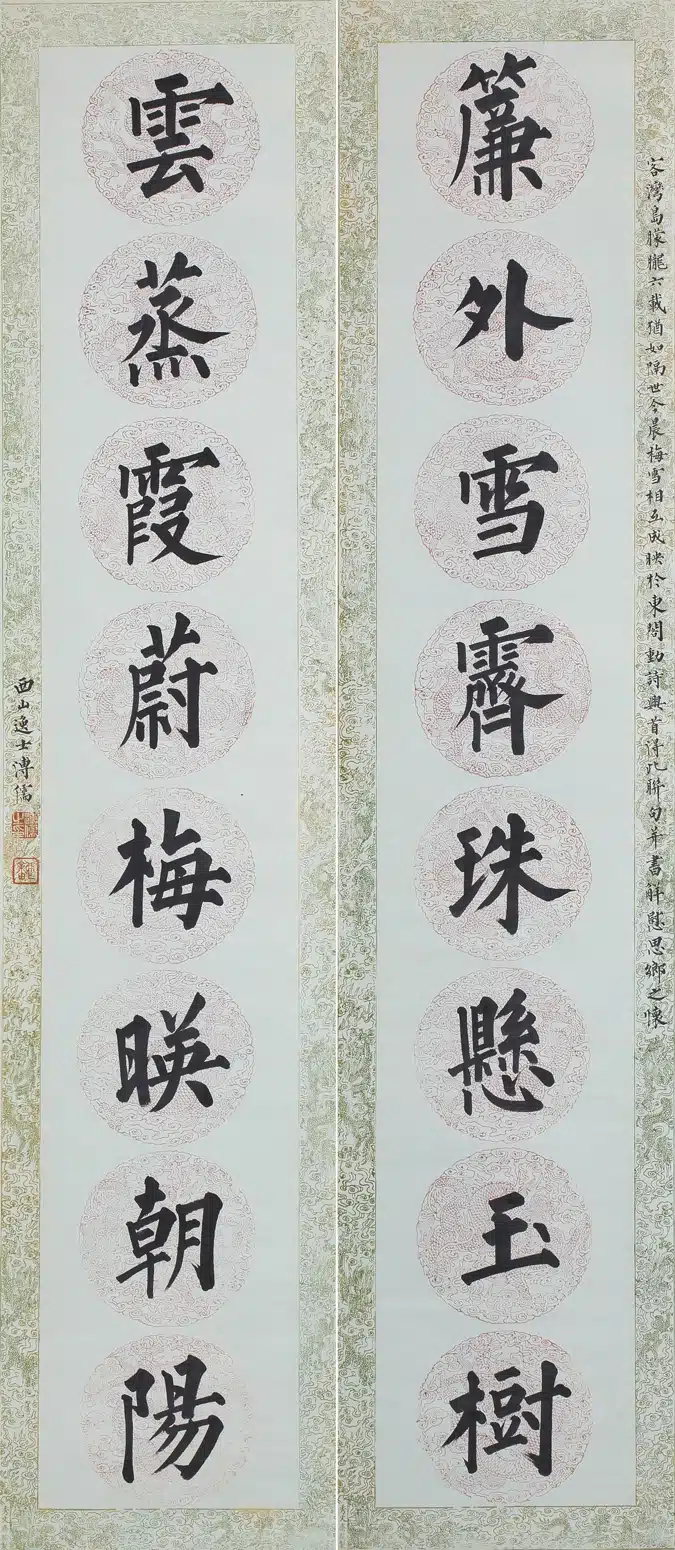 客灣島朦朧六載猶如隔世今晨梅雪相互成映於東閣動詩興首得此聯句并書解慰思鄉之懷
簾外雪霽珠懸玉樹
雲蒸霞蔚梅暎朝陽
西山逸士溥儒